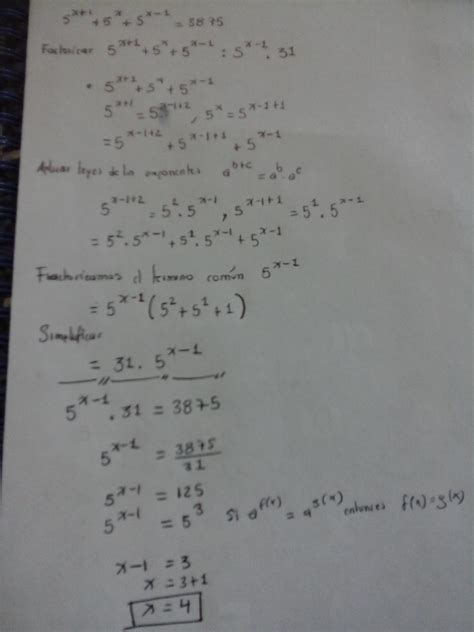 5^{x+1}+5^x+5^{x-1}=3875
Factorizar 5^{x+1}+5^x+5^{x-1} : 5^{x-1}·31
• 5^{x+1}+5^x+5^{x-1}
5^{x+1}=5^{x-1+2}, 5^x=5^{x-1+1}
=5^{x-1+2}+5^{x-1+1}+5^{x-1}
Aplicar leyes de los exponentes a^{b+c}=a^b·a^c
5^{x-1+2}=5^2·5^{x-1}, 5^{x-1+1}=5^1·5^{x-1}
=5^2·5^{x-1}+5^1·5^{x-1}+5^{x-1}
Fractorizamos el termino común 5^{x-1}
=5^{x-1}(5^2+5^1+1)
Simplificar
=31·5^{x-1}
5^{x-1}·31=3875
5^{x-1}=3875/31
5^{x-1}=125
5^{x-1}=5^3 Si a^{f(x)}=a^{g(x)} entonces f(x)=g(x)
x-1=3
x=3+1
x=4